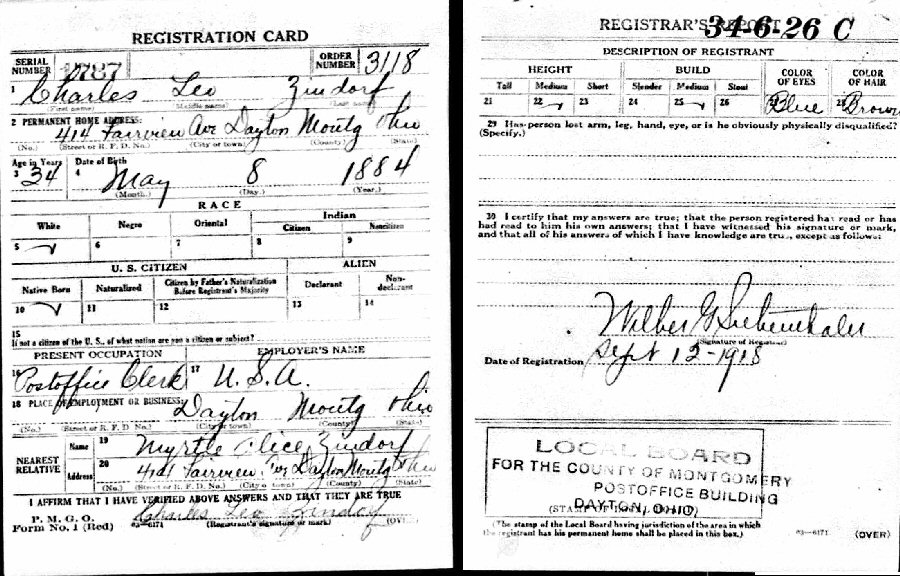 REGISTRATION CARD
SERIAL NUMBER 1787 ORDER NUMBER 3118
1 Charles Leo Zindorf
(First name) (Middle name) (Last name)
2 PERMANENT HOME ADDRESS:
414 Fairview Ave Dayton Montg Ohio
(No.) (Street or R. F. D. No.) (City or town) (County) (State)
Age in Years Date of Birth
3 34 4 May 8 1884
(Month.) (Day.) (Year.)
RACE
White Negro Oriental Indian
Citizen Noncitizen
5 ✓ 6 7 8 9
U. S. CITIZEN ALIEN
Native Born Naturalized Citizen by Father's Naturalization Before Registrant's Majority Declarant Non-declarant
10 ✓ 11 12 13 14
15
If not a citizen of the U. S., of what nation are you a citizen or subject?
PRESENT OCCUPATION EMPLOYER'S NAME
16 Postoffice Clerk 17 U. S. A.
18 PLACE OF EMPLOYMENT OR BUSINESS:
Dayton Montg Ohio
(No.) (Street or R. F. D. No.) (City or town) (County) (State)
NEAREST RELATIVE
Name 19 Myrtle Alice Zindorf
Address 20 414 Fairview Ave Dayton Montg Ohio
(No.) (Street or R. F. D. No.) (City or town) (County) (State)
I AFFIRM THAT I HAVE VERIFIED ABOVE ANSWERS AND THAT THEY ARE TRUE
P. M. G. O.
Form No. 1 (Red) 03—6171 Charles Leo Zindorf
(Registrant's signature or mark) (OVER)
REGISTRAR'S REPORT 34-6-26 C
DESCRIPTION OF REGISTRANT
HEIGHT BUILD COLOR OF EYES COLOR OF HAIR
Tall Medium Short Slender Medium Stout
21 22 ✓ 23 24 25 ✓ 26 27 Blue 28 Brown
29 Has person lost arm, leg, hand, eye, or is he obviously physically disqualified?
(Specify.)
30 I certify that my answers are true; that the person registered has read or has
had read to him his own answers; that I have witnessed his signature or mark,
and that all of his answers of which I have knowledge are true, except as follows:
Wilber G Siebenthaler
(Signature of Registrar)
Date of Registration Sept 12-1918
LOCAL BOARD
FOR THE COUNTY OF MONTGOMERY
POSTOFFICE BUILDING
DAYTON, OHIO
(STAMP OF LOCAL BOARD)
(The stamp of the Local Board having jurisdiction of the area in which
the registrant has his permanent home shall be placed in this box.)
03—6171 (OVER)